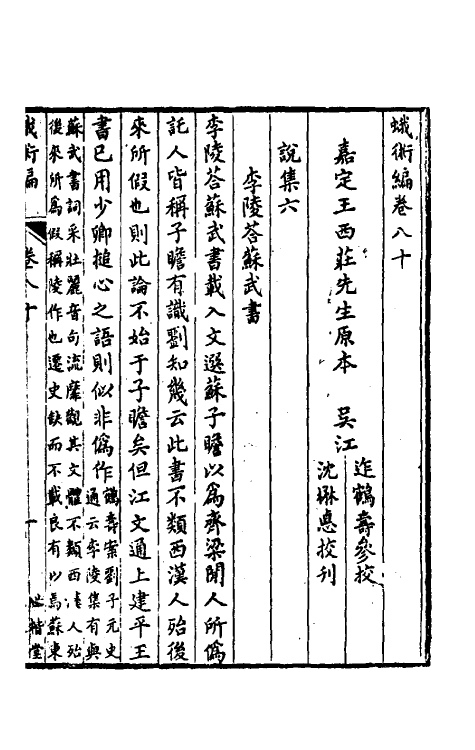 蛾術編卷八十
嘉定王西莊先生原本　吳江
迮鶴壽參校
沈楙悳校刊
說集六
李陵荅蘇武書
李陵荅蘇武書載入文選蘇子瞻以爲齊梁閒人所僞
託人皆稱子瞻有識劉知幾云此書不類西漢人殆後
來所假也則此論不始于子瞻矣但江文通上建平王
書已用少卿搥心之語則似非僞作
鶴壽案劉子元史
通云李陵集有與
蘇武書詞采壯麗音句流靡觀其文體不類西漢人殆
後來所爲假稱陵作也遷史缺而不載良有以焉蘇東
蛾術編
卷八十
一
世楷堂